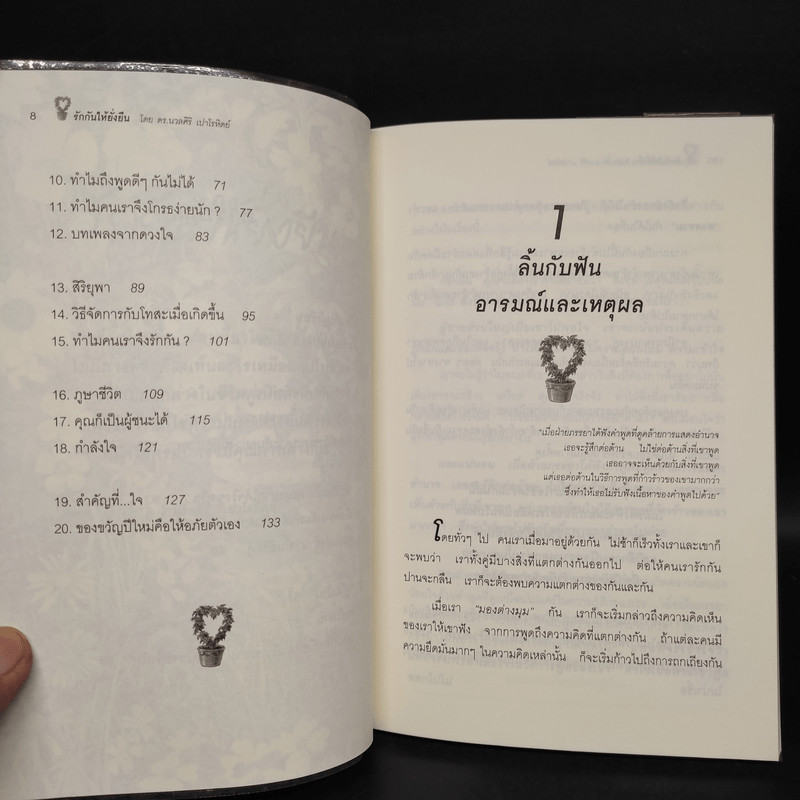 8 รักกันให้ยั่งยืน โดย ดร.นวลศิริ เปาโรหิตย์
10. ทำไมถึงพูดดีๆ กันไม่ได้ 71
11. ทำไมคนเราจึงโกรธง่ายนัก ? 77
12. บทเพลงจากดวงใจ 83
13. สิริยุพา 89
14. วิธีจัดการกับโทสะเมื่อเกิดขึ้น 95
15. ทำไมคนเราจึงรักกัน ? 101
16. ภูษาชีวิต 109
17. คุณก็เป็นผู้ชนะได้ 115
18. กำลังใจ 121
19. สำคัญที่...ใจ 127
20. ของขวัญปีใหม่คือให้อภัยตัวเอง 133
1
ลิ้นกับฟัน
อารมณ์และเหตุผล
"เมื่อฝ่ายภรรยาได้ฟังคำพูดที่ดูคล้ายการแสดงอำนาจ
เธอจะรู้สึกต่อต้าน ไม่ใช่ต่อต้านสิ่งที่เขาพูด
เธออาจจะเห็นด้วยกับสิ่งที่เขาพูด
แต่เธอต่อต้านในวิธีการพูดที่ก้าวร้าวของเขามากกว่า
ซึ่งทำให้เธอไม่รับฟังเนื้อหาของคำพูดไปด้วย"
โดยทั่วๆ ไป คนเราเมื่อมาอยู่ด้วยกัน ไม่ช้าก็เร็วทั้งเราและเขาก็
จะพบว่า เราทั้งคู่มีบางสิ่งที่แตกต่างกันออกไป ต่อให้คนเรารักกัน
ปานจะกลืน เราก็จะต้องพบความแตกต่างของกันและกัน
เมื่อเรา "มองต่างมุม" กัน เราก็จะเริ่มกล่าวถึงความคิดเห็น
ของเราให้เขาฟัง จากการพูดถึงความคิดที่แตกต่างกัน ถ้าแต่ละคนมี
ความยึดมั่นมากๆ ในความคิดเหล่านั้น ก็จะเริ่มก้าวไปถึงการถกเถียงกัน